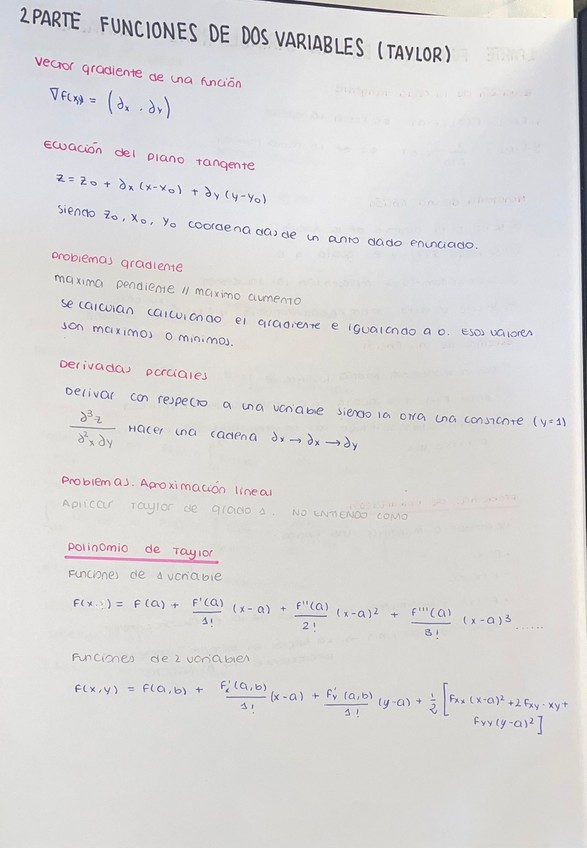 2 PARTE FUNCIONES DE DOS VARIABLES (TAYLOR)
Vector gradiente de una función
∇F(x,y) = (∂x , ∂y)
Ecuación del plano tangente
z = z₀ + ∂x (x-x₀) + ∂y (y-y₀)
siendo z₀, x₀, y₀ coordenadas de un punto dado enunciado.
Problemas gradiente
maxima pendiente // maximo aumento
se calculan calculando el gradiente e igualando a 0. Esos valores
son maximos o minimos.
Derivadas parciales
Derivar con respecto a una variable siendo la otra una constante (y=1)
∂³z / ∂²x ∂y Hacer una cadena ∂x → ∂x → ∂y
Problemas. Aproximación lineal
Aplicar Taylor de grado 1. NO ENTIENDO COMO
Polinomio de Taylor
Funciones de 1 variable
F(x) = F(a) + F'(a)/1! (x-a) + F''(a)/2! (x-a)² + F'''(a)/3! (x-a)³ ......
Funciones de 2 variables
F(x,y) = F(a,b) + F'x(a,b)/1! (x-a) + F'y(a,b)/1! (y-a) + 1/2 [Fxx (x-a)² + 2Fxy · xy +
Fyy (y-a)²]